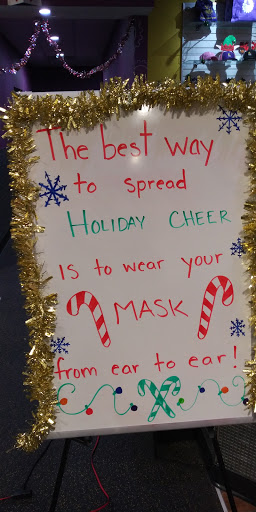 The best way
to spread
HOLIDAY CHEER
is to wear your
MASK
from ear to ear!